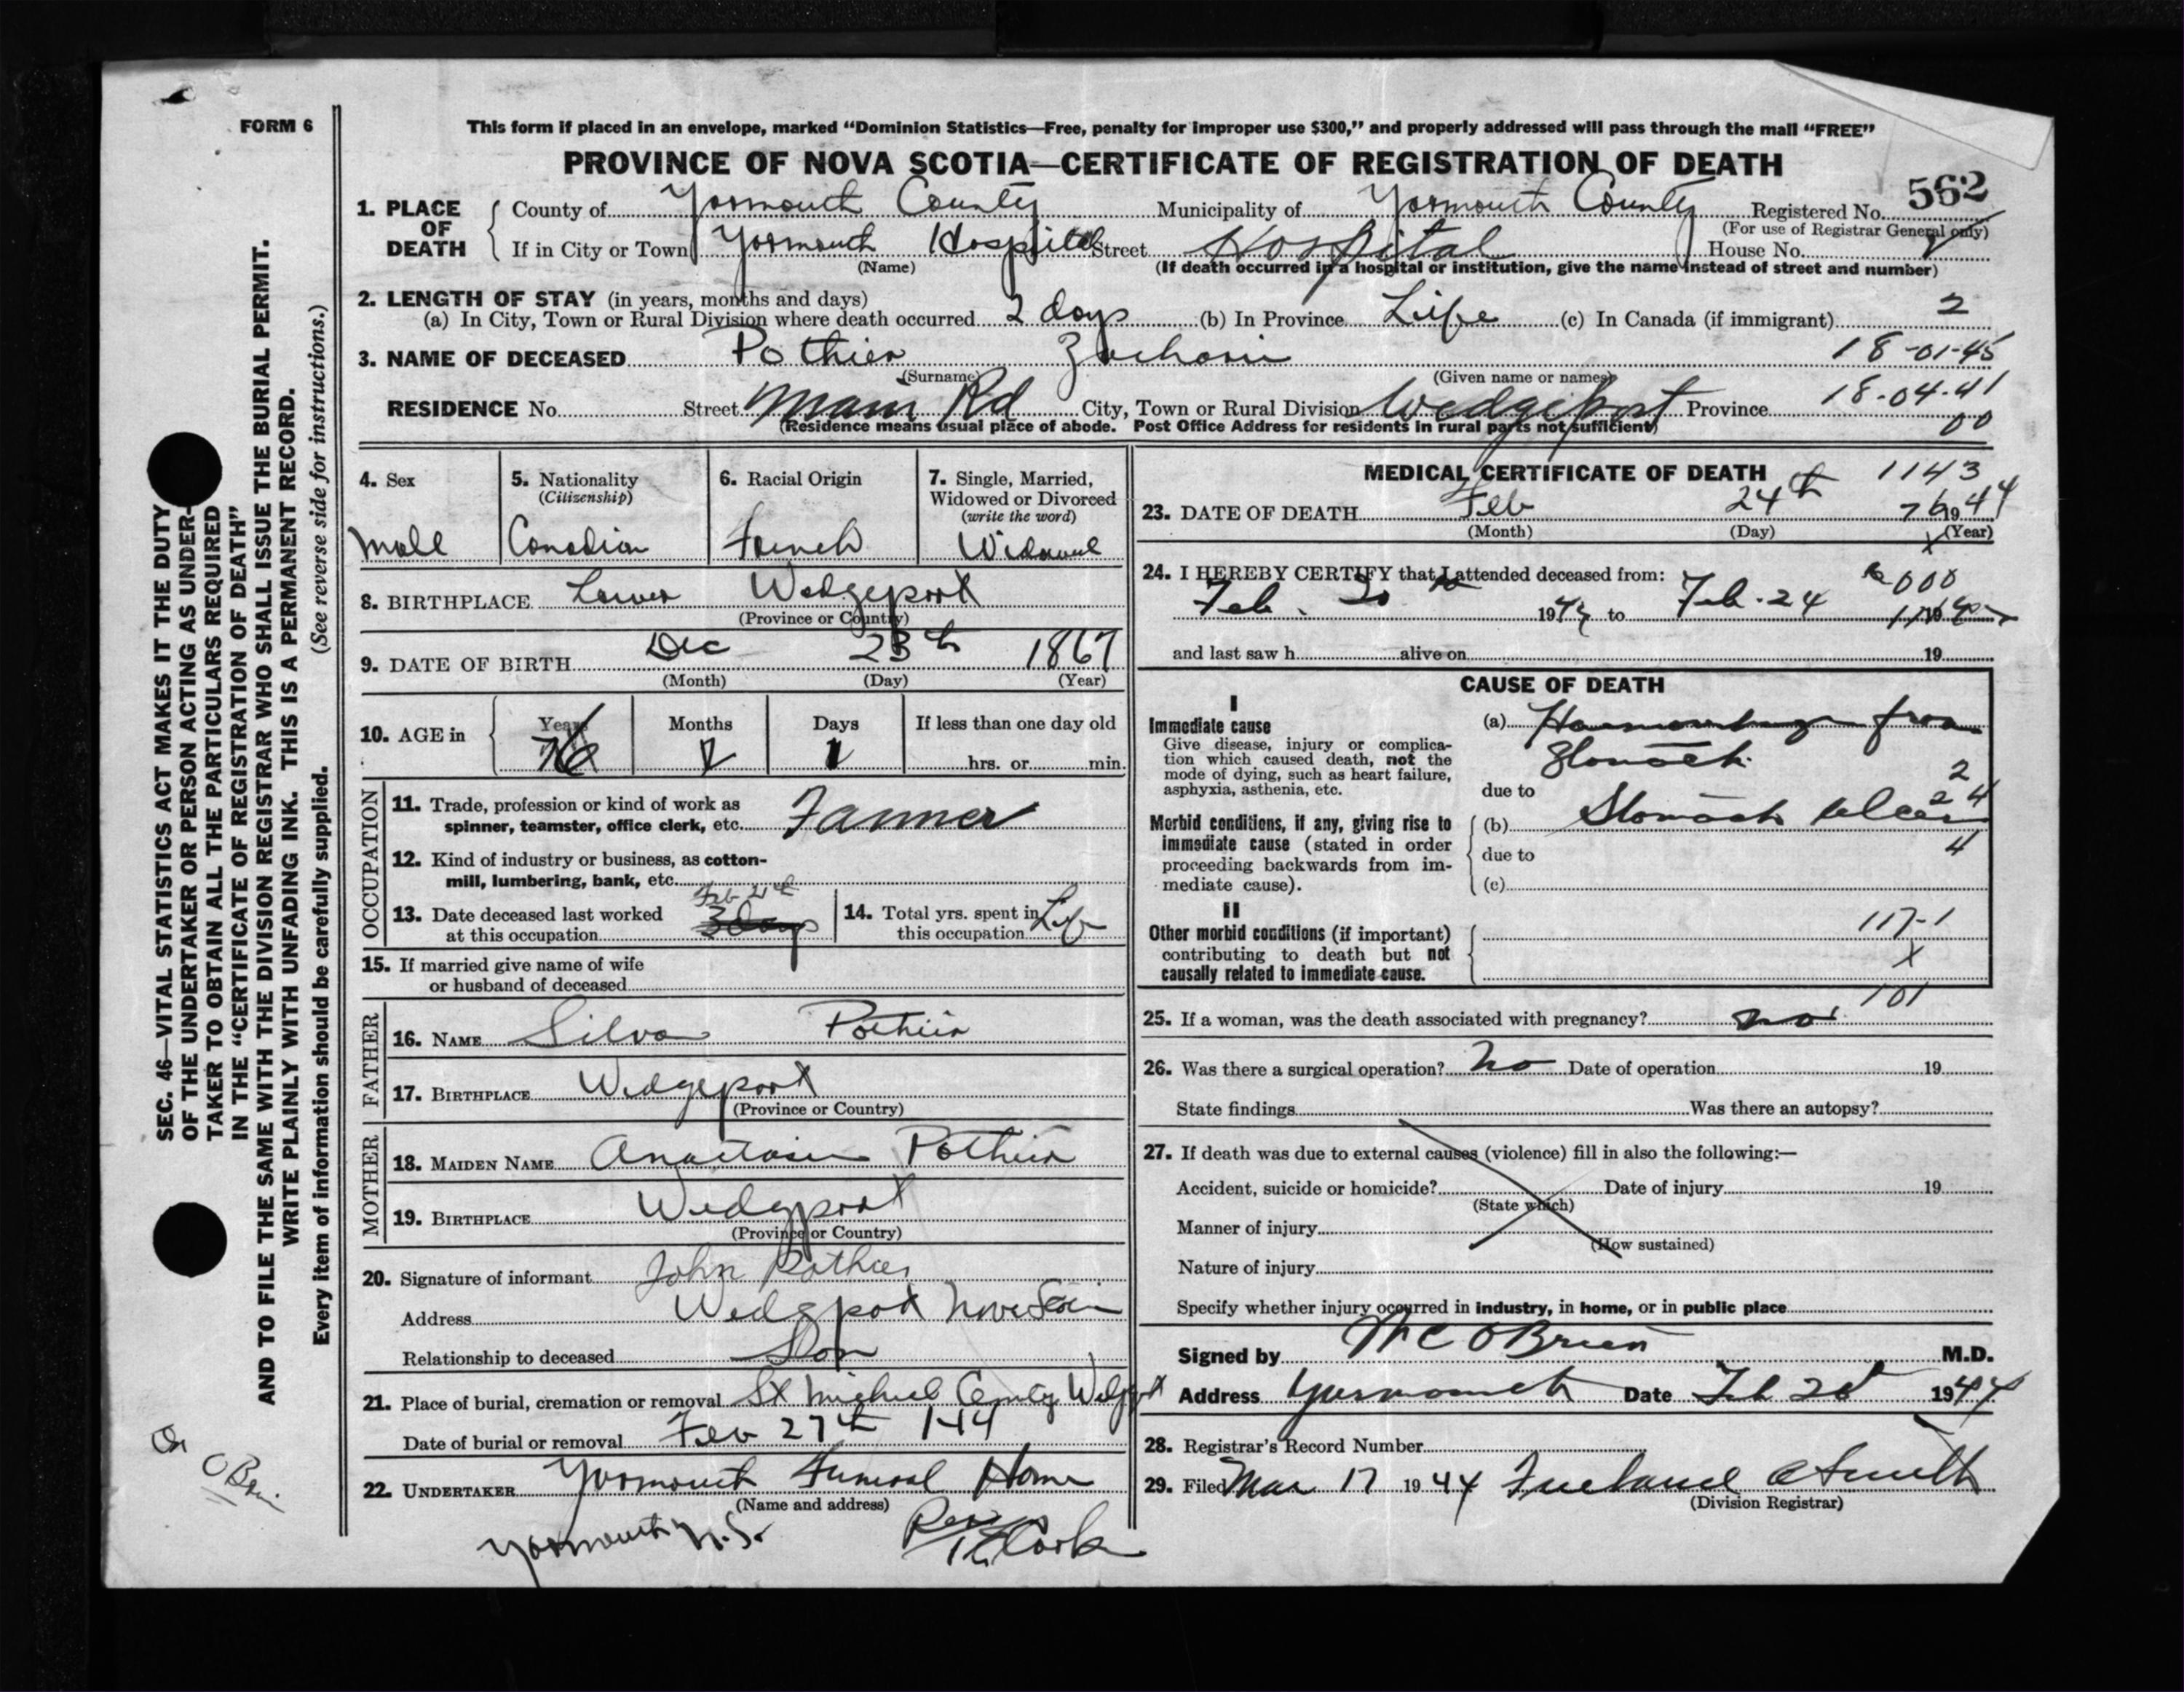 FORM 6
This form if placed in an envelope, marked "Dominion Statistics—Free, penalty for improper use $300," and properly addressed will pass through the mail "FREE"
PROVINCE OF NOVA SCOTIA—CERTIFICATE OF REGISTRATION OF DEATH
562
1. PLACE OF DEATH
County of Yarmouth County Municipality of Yarmouth County Registered No.
(For use of Registrar General only)
If in City or Town Yarmouth Hospital Street Hospital House No.
(Name) (If death occurred in a hospital or institution, give the name instead of street and number)
2. LENGTH OF STAY (in years, months and days)
(a) In City, Town or Rural Division where death occurred 2 days (b) In Province Life (c) In Canada (if immigrant) 2
3. NAME OF DECEASED Pothier Zacharie 18-01-45
(Surname) (Given name or names)
RESIDENCE No. Street Main Rd City, Town or Rural Division Wedgeport Province 18-04-41
00
(Residence means usual place of abode. Post Office Address for residents in rural parts not sufficient)
4. Sex
Male
5. Nationality
(Citizenship)
Canadian
6. Racial Origin
French
7. Single, Married,
Widowed or Divorced
(write the word)
Widowed
8. BIRTHPLACE Lower Wedgeport
(Province or Country)
9. DATE OF BIRTH Dec 23th 1867
(Month) (Day) (Year)
10. AGE in
Years 76 Months 2 Days 1 If less than one day old
hrs. or min.
OCCUPATION
11. Trade, profession or kind of work as
spinner, teamster, office clerk, etc. Farmer
12. Kind of industry or business, as cotton-
mill, lumbering, bank, etc.
13. Date deceased last worked
at this occupation 3 days
14. Total yrs. spent in
this occupation Life
15. If married give name of wife
or husband of deceased
FATHER
16. NAME Silva Pothier
17. BIRTHPLACE Wedgeport
(Province or Country)
MOTHER
18. MAIDEN NAME Anastasie Pothier
19. BIRTHPLACE Wedgport
(Province or Country)
20. Signature of informant John Pothier
Address Wedgport Nova Scotia
Relationship to deceased Son
21. Place of burial, cremation or removal St Michael Wedgport
Date of burial or removal Feb 27th 1944
22. UNDERTAKER Yarmouth Funeral Home
(Name and address)
Yarmouth N.S.
MEDICAL CERTIFICATE OF DEATH 1143
23. DATE OF DEATH Feb 24th 76 1944
(Month) (Day) (Year)
24. I HEREBY CERTIFY that I attended deceased from:
000
Feb. 1944 to Feb. 24 19
and last saw h alive on 19
CAUSE OF DEATH
I
Immediate cause
Give disease, injury or complica-
tion which caused death, not the
mode of dying, such as heart failure,
asphyxia, asthenia, etc.
(a) Haemorrhage from
Stomach
2
due to
24
Morbid conditions, if any, giving rise to
immediate cause (stated in order
proceeding backwards from im-
mediate cause).
(b) Stomach ulcer
4
due to
(c)
II
Other morbid conditions (if important)
contributing to death but not
causally related to immediate cause.
117-1
X
101
25. If a woman, was the death associated with pregnancy? no
26. Was there a surgical operation? No Date of operation 19
State findings Was there an autopsy?
27. If death was due to external causes (violence) fill in also the following:—
Accident, suicide or homicide? Date of injury 19
(State which)
Manner of injury
(How sustained)
Nature of injury
Specify whether injury occurred in industry, in home, or in public place
Signed by O'Brien M.D.
Address Yarmouth Date Feb 1944
28. Registrar's Record Number
29. Filed Mar 17 1944
(Division Registrar)
SEC. 46—VITAL STATISTICS ACT MAKES IT THE DUTY
OF THE UNDERTAKER OR PERSON ACTING AS UNDER-
TAKER TO OBTAIN ALL THE PARTICULARS REQUIRED
IN THE "CERTIFICATE OF REGISTRATION OF DEATH"
AND TO FILE THE SAME WITH THE DIVISION REGISTRAR WHO SHALL ISSUE THE BURIAL PERMIT.
WRITE PLAINLY WITH UNFADING INK. THIS IS A PERMANENT RECORD.
Every item of information should be carefully supplied. (See reverse side for instructions.)
Dr
O'Brien